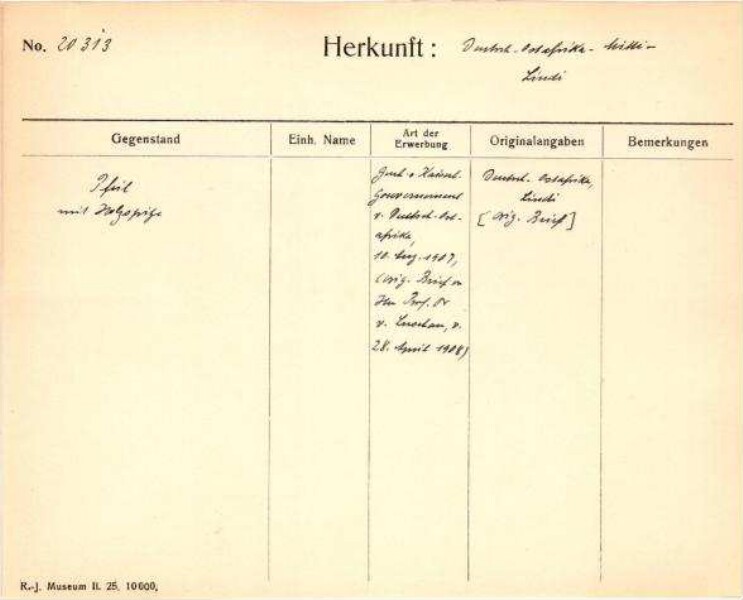 No. 20313
Herkunft: Deutsch-Ostafrika-
Lindi
Gegenstand
Einh. Name
Art der Erwerbung
Originalangaben
Bemerkungen
Pfeil
mit Holzspitze
Gesch. v. Kaiserl.
Gouvernement
v. Deutsch-Ost-
afrika,
10. 1907,
(orig. Brief an
Hrn Prof. Dr
v. Luschan, v.
28. April 1908)
Deutsch-Ostafrika,
Lindi
[orig. Brief]
R.-J. Museum II. 25. 10000,